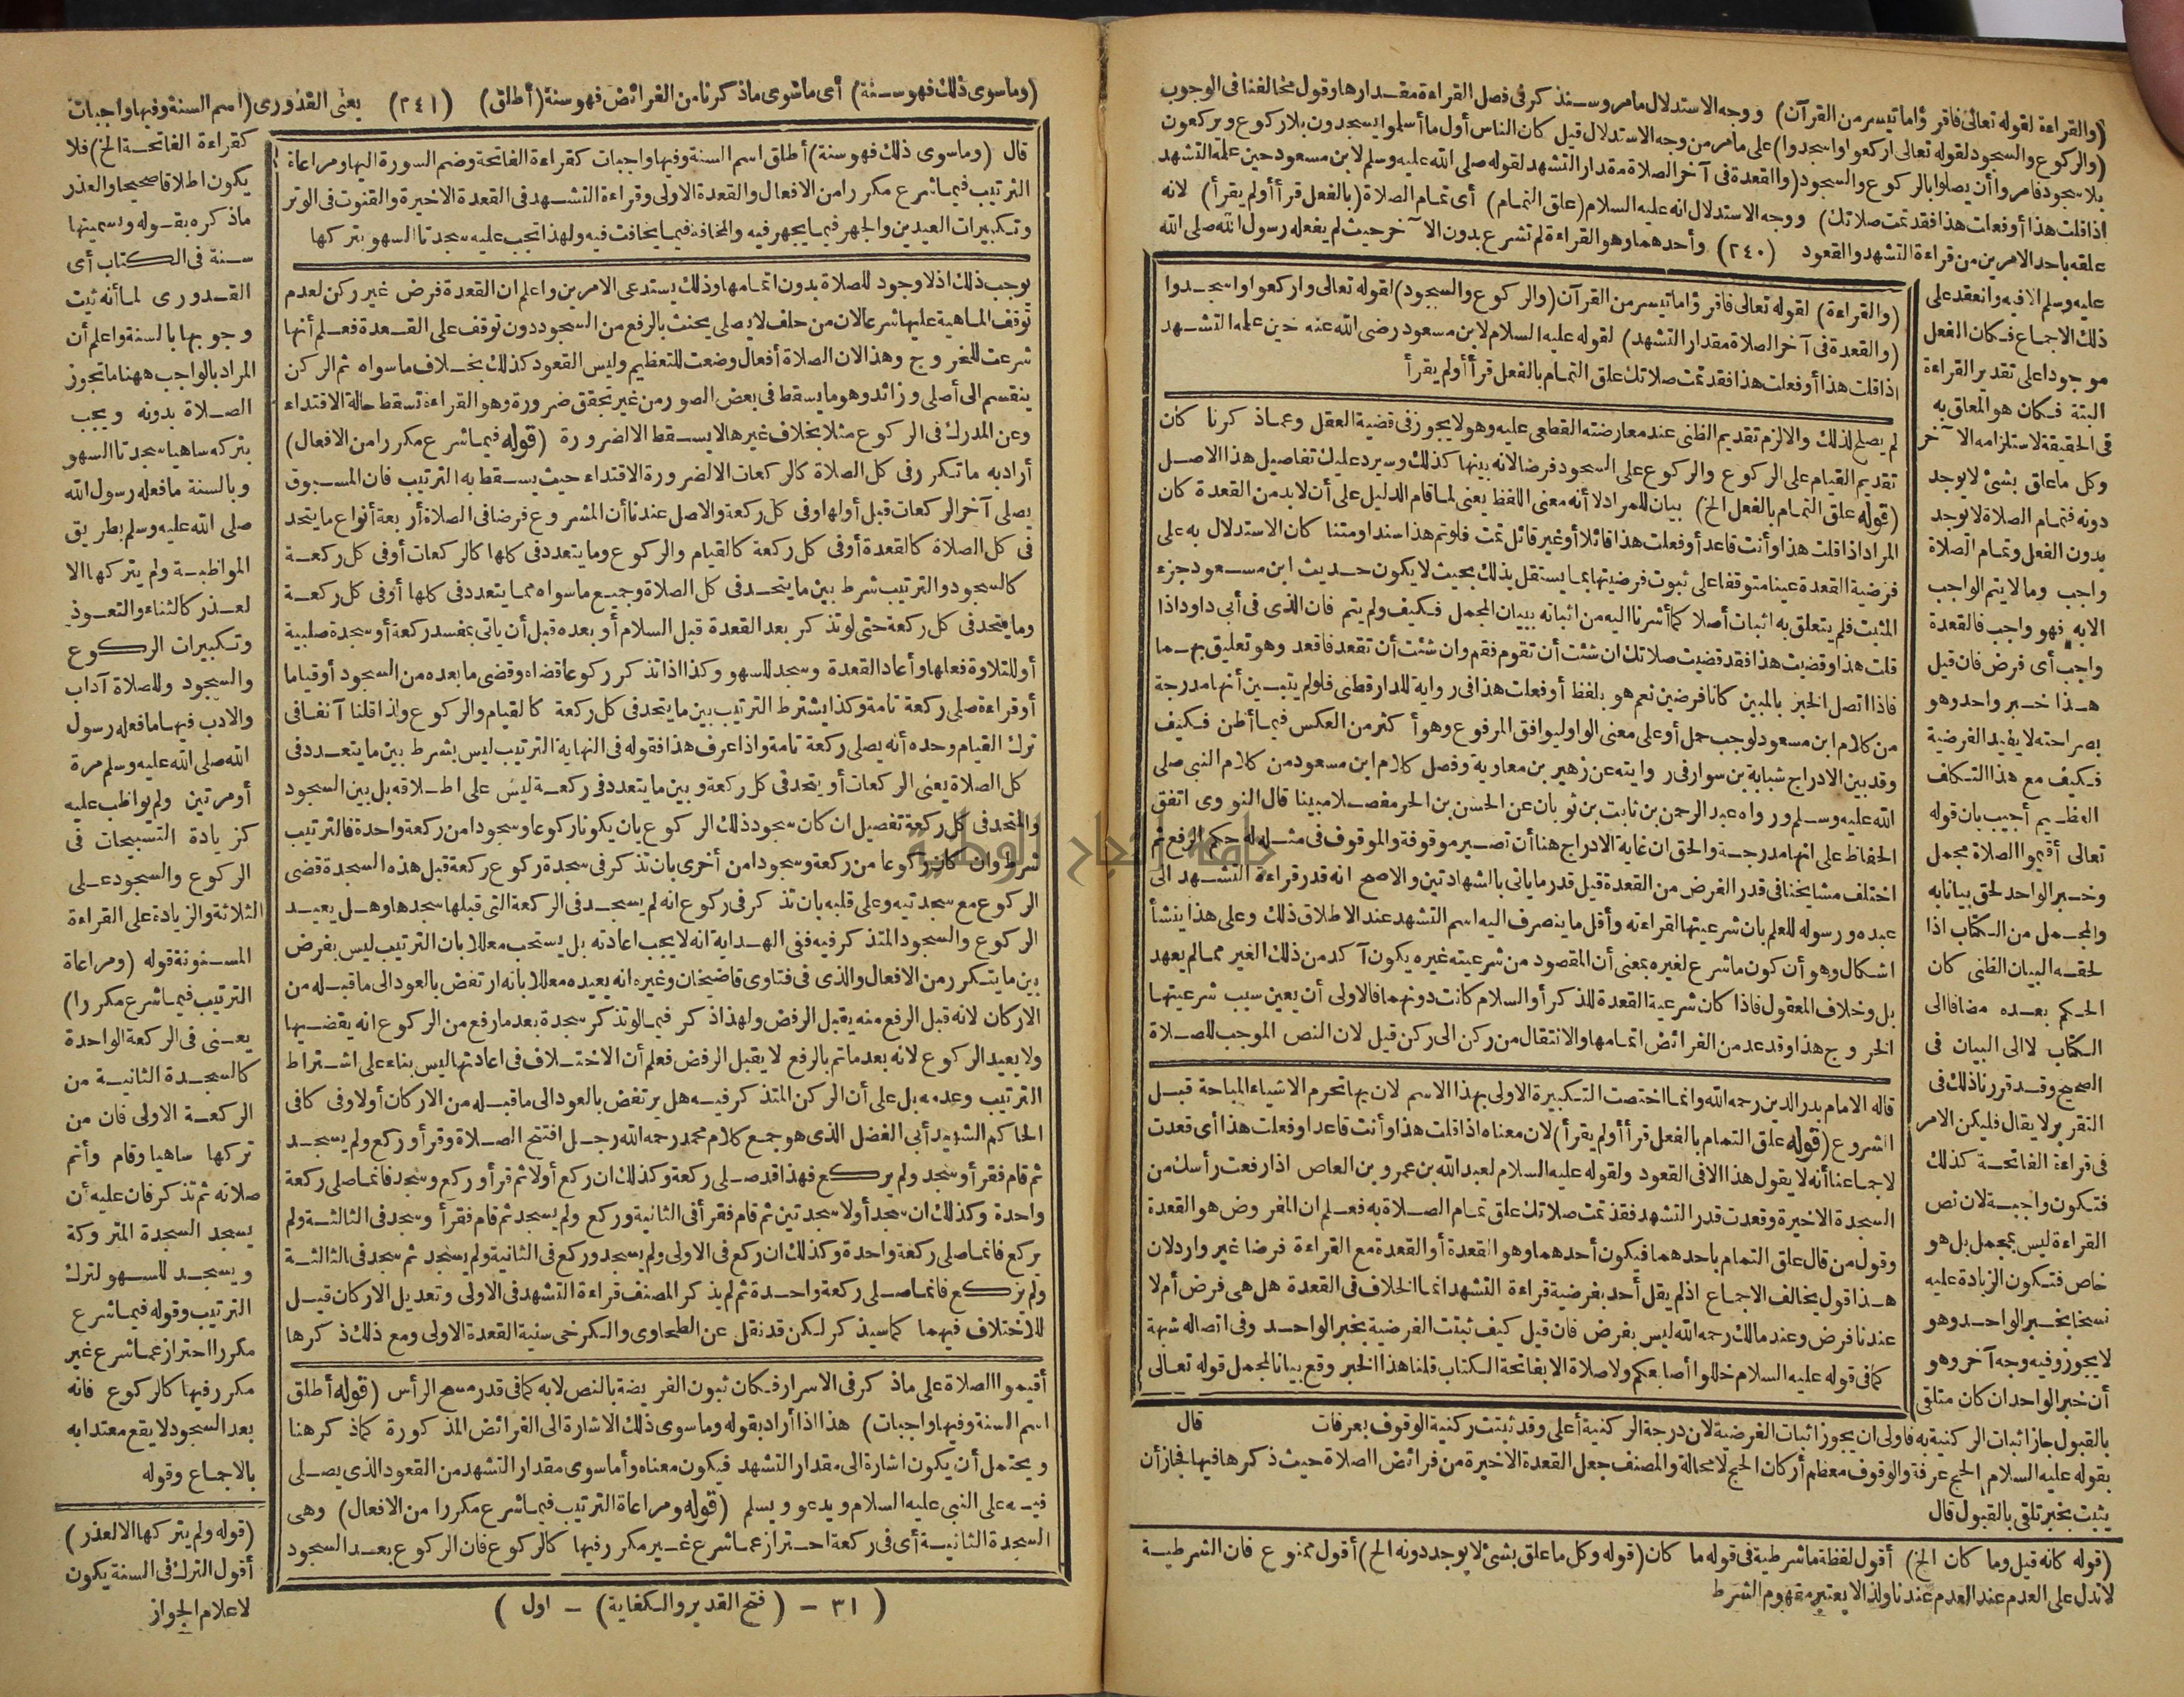 (والقراءة لقوله تعالى فاقرؤا ما تيسر من القرآن) ووجه الاستدلال ما مر وسنذكر فى فصل القراءة مقدارها وقول مخالفنا فى الوجوب
(والركوع والسجود لقوله تعالى اركعوا واسجدوا) على ما مر من وجه الاستدلال قيل كان الناس أول ما أسلموا يسجدون بلا ركوع ويركعون
بلا سجود فامروا أن يصلوا بالركوع والسجود (والقعدة فى آخر الصلاة مقدار التشهد لقوله صلى الله عليه وسلم لابن مسعود حين علمه التشهد
اذا قلت هذا أو فعلت هذا فقد تمت صلاتك) ووجه الاستدلال انه عليه السلام (علق التمام) أى تمام الصلاة (بالفعل قرأ أو لم يقرأ) لانه
علقه باحد الامرين من قراءة التشهد والقعود (٢٤٠) وأحدهما وهو القراءة لم تشرع بدون الآخر حيث لم يفعله رسول الله صلى الله
عليه وسلم الا فيه وانعقد على
ذلك الاجماع فكان الفعل
موجودا على تقدير القراءة
البتة فكان هو المعلق به
فى الحقيقة لاستلزامه الآخر
وكل ما علق بشئ لا يوجد
دونه فتمام الصلاة لا يوجد
بدون الفعل وتمام الصلاة
واجب وما لا يتم الواجب
الا به فهو واجب فالقعدة
واجب أى فرض فان قيل
هذا خبر واحد وهو
بصراحته لا يفيد الفرضية
فكيف مع هذا التكلف
العظيم أجيب بان قوله
تعالى أقيموا الصلاة مجمل
وخبر الواحد لحق بيانا به
والمجمل من الكتاب اذا
لحقه البيان الظنى كان
الحكم بعده مضافا الى
الكتاب لا الى البيان فى
الصحيح وقد قررنا ذلك فى
التقرير لا يقال فليكن الامر
فى قراءة الفاتحة كذلك
فتكون واجبة لان نص
القراءة ليس بمجمل بل هو
خاص فتكون الزيادة عليه
نسخا بخبر الواحد وهو
لا يجوز وفيه وجه آخر وهو
أن خبر الواحد ان كان متلقى
بالقبول جاز اثبات الركنية به فاولى ان يجوز اثبات الفرضية لان درجة الركنية أعلى وقد ثبتت ركنية الوقوف بعرفات قال
بقوله عليه السلام الحج عرفة والوقوف معظم أركان الحج لا محالة والمصنف جعل القعدة الاخيرة من فرائض الصلاة حيث ذكرها فيها فجاز أن
يثبت بخبر تلقى بالقبول قال
(والقراءة) لقوله تعالى فاقرؤا ما تيسر من القرآن (والركوع والسجود) لقوله تعالى واركعوا واسجدوا
(والقعدة فى آخر الصلاة مقدار التشهد) لقوله عليه السلام لابن مسعود رضى الله عنه حين علمه التشهد
اذا قلت هذا أو فعلت هذا فقد تمت صلاتك علق التمام بالفعل قرأ أو لم يقرأ
لم يصلح لذلك والا لزم تقديم الظنى عند معارضته القطعى عليه وهو لا يجوز فى قضية العقل وعما ذكرنا كان
تقديم القيام على الركوع والركوع على السجود فرضا لانه بينها كذلك وسيرد عليك تفاصيل هذا الاصل
(قوله علق التمام بالفعل الخ) بيان للمراد لا أنه معنى اللفظ يعنى لما قام الدليل على أن لا بد من القعدة كان
المراد اذا قلت هذا وأنت قاعد أو فعلت هذا قائلا أو غير قائل تمت فلو تم هذا سندا ومتنا كان الاستدلال به على
فرضية القعدة عينا متوقفا على ثبوت فرضيتها بما يستقل بذلك بحيث لا يكون حديث ابن مسعود جزء
المثبت فلم يتعلق به اثبات أصلا كما أشرنا اليه من اثباته ببيان المجمل فكيف ولم يتم فان الذى فى أبى داود اذا
قلت هذا وقضيت هذا فقد قضيت صلاتك ان شئت أن تقوم فقم وان شئت أن تقعد فاقعد وهو تعليق بهما
فاذا اتصل الخبر بالمبين كانا فرضين نعم هو بلفظ أو فعلت هذا فى رواية للدارقطنى فلو لم يتبين أنها مدرجة
من كلام ابن مسعود لوجب حمل أو على معنى الواو ليوافق المرفوع وهو أكثر من العكس فيما أظن فكيف
وقد بين الادراج شبابة بن سوار فى روايته عن زهير بن معاوية وفصل كلام ابن مسعود من كلام النبى صلى
الله عليه وسلم ورواه عبد الرحمن بن ثابت بن ثوبان عن الحسن بن الحر مفصلا مبينا قال النووى اتفق
الحفاظ على انها مدرجة والحق ان غاية الادراج هنا أن تصير موقوفة والموقوف فى مثله له حكم الرفع ثم
اختلف مشايخنا فى قدر الفرض من القعدة قيل قدر ما يأتى بالشهادتين والاصح انه قدر قراءة التشهد الى
عبده ورسوله للعلم بان شرعيتها لقراءته وأقل ما ينصرف اليه اسم التشهد عند الاطلاق ذلك وعلى هذا ينشأ
اشكال وهو أن كون ما شرع لغيره بمعنى أن المقصود من شرعيته غيره يكون آكد من ذلك الغير مما لم يعهد
بل وخلاف المعقول فاذا كان شرعية القعدة للذكر أو السلام كانت دونهما فالاولى أن يعين سبب شرعيتها
الخروج هذا وقد عد من الفرائض اتمامها والانتقال من ركن الى ركن قيل لان النص الموجب للصلاة
قاله الامام بدر الدين رحمه الله وانما اختصت التكبيرة الاولى بهذا الاسم لان بها تحرم الاشياء المباحة قبل
الشروع (قوله علق التمام بالفعل قرأ أو لم يقرأ) لان معناه اذا قلت هذا وأنت قاعد أو فعلت هذا أى قعدت
لاجماعنا أنه لا يقول هذا الا فى القعود ولقوله عليه السلام لعبد الله بن عمرو بن العاص اذا رفعت رأسك من
السجدة الاخيرة وقعدت قدر التشهد فقد تمت صلاتك علق تمام الصلاة به فعلم ان المفروض هو القعدة
وقول من قال علق التمام باحدهما فيكون أحدهما وهو القعدة أو القعدة مع القراءة فرضا غير وارد لان
هذا قول يخالف الاجماع اذ لم يقل أحد بفرضية قراءة التشهد انما الخلاف فى القعدة هل هى فرض أم لا
عندنا فرض وعند مالك رحمه الله ليس بفرض فان قيل كيف ثبتت الفرضية بخبر الواحد وفى اتصاله شبهة
كما فى قوله عليه السلام خللوا أصابعكم ولا صلاة الا بفاتحة الكتاب قلنا هذا الخبر وقع بيانا لمجمل قوله تعالى
(قوله كانه قيل وما كان الخ) أقول لفظة ما شرطية فى قوله ما كان (قوله وكل ما علق بشئ لا يوجد دونه الخ) أقول ممنوع فان الشرطية
لا تدل على العدم عند العدم عندنا ولذا لا يعتبر مفهوم الشرط
(وما سوى ذلك فهو سنة) أى ما سوى ما ذكرنا من الفرائض فهو سنة (أطلق) (٢٤١) يعنى القدورى (اسم السنة وفيها واجبات
كقراءة الفاتحة الخ) فلا
يكون اطلاقا صحيحا والعذر
ما ذكره بقوله وتسميتها
سنة فى الكتاب أى
القدورى لما أنه ثبت
وجوبها بالسنة واعلم أن
المراد بالواجب ههنا ما تجوز
الصلاة بدونه ويجب
بتركه ساهيا سجدتا السهو
وبالسنة ما فعله رسول الله
صلى الله عليه وسلم بطريق
المواظبة ولم يتركها الا
لعذر كالثناء والتعوذ
وتكبيرات الركوع
والسجود وللصلاة آداب
والادب فيها ما فعله رسول
الله صلى الله عليه وسلم مرة
أو مرتين ولم يواظب عليه
كزيادة التسبيحات فى
الركوع والسجود على
الثلاثة والزيادة على القراءة
المسنونة قوله (ومراعاة
الترتيب فيما شرع مكررا)
يعنى فى الركعة الواحدة
كالسجدة الثانية من
الركعة الاولى فان من
تركها ساهيا وقام وأتم
صلاته ثم تذكر فان عليه أن
يسجد السجدة المتروكة
ويسجد للسهو لترك
الترتيب وقوله فيما شرع
مكررا احتراز عما شرع غير
مكرر فيها كالركوع فانه
بعد السجود لا يقع معتدا به
بالاجماع وقوله
(قوله ولم يتركها الا لعذر)
أقول الترك فى السنة يكون
لاعلام الجواز
قال (وما سوى ذلك فهو سنة) أطلق اسم السنة وفيها واجبات كقراءة الفاتحة وضم السورة اليها ومراعاة
الترتيب فيما شرع مكررا من الافعال والقعدة الاولى وقراءة التشهد فى القعدة الاخيرة والقنوت فى الوتر
وتكبيرات العيدين والجهر فيما يجهر فيه والمخافتة فيما يخافت فيه ولهذا تجب عليه سجدتا السهو بتركها
يوجب ذلك اذ لا وجود للصلاة بدون اتمامها وذلك يستدعى الامرين واعلم ان القعدة فرض غير ركن لعدم
توقف الماهية عليها شرعا لان من حلف لا يصلى يحنث بالرفع من السجود دون توقف على القعدة فعلم أنها
شرعت للخروج وهذا لان الصلاة أفعال وضعت للتعظيم وليس القعود كذلك بخلاف ما سواه ثم الركن
ينقسم الى أصلى وزائد وهو ما يسقط فى بعض الصور من غير تحقق ضرورة وهو القراءة تسقط حالة الاقتداء
وعن المدرك فى الركوع مثلا بخلاف غيرها لا يسقط الا لضرورة (قوله فيما شرع مكررا من الافعال)
أراد به ما تكرر فى كل الصلاة كالركعات الا لضرورة الاقتداء حيث يسقط به الترتيب فان المسبوق
يصلى آخر الركعات قبل أولها وفى كل ركعة والاصل عندنا أن المشروع فرضا فى الصلاة أربعة أنواع ما يتحد
فى كل الصلاة كالقعدة أو فى كل ركعة كالقيام والركوع وما يتعدد فى كلها كالركعات أو فى كل ركعة
كالسجود والترتيب شرط بين ما يتحد فى كل الصلاة وجميع ما سواه مما يتعدد فى كلها أو فى كل ركعة
وما يتحد فى كل ركعة حتى لو تذكر بعد القعدة قبل السلام أو بعده قبل أن يأتى بمفسد ركعة أو سجدة صلبية
أو للتلاوة فعلها وأعاد القعدة وسجد للسهو وكذا اذا تذكر ركوعا قضاه وقضى ما بعده من السجود أو قياما
أو قراءة صلى ركعة تامة وكذا يشترط الترتيب بين ما يتحد فى كل ركعة كالقيام والركوع ولذا قلنا آنفا فى
ترك القيام وحده أنه يصلى ركعة تامة واذا عرف هذا فقوله فى النهاية الترتيب ليس بشرط بين ما يتعدد فى
كل الصلاة يعنى الركعات أو يتحد فى كل ركعة وبين ما يتعدد فى ركعة ليس على اطلاقه بل بين السجود
والمتحد فى كل ركعة تفصيل ان كان سجود ذلك الركوع بان يكونا ركوعا وسجودا من ركعة واحدة فالترتيب
شرط وان كان ركوعا من ركعة وسجودا من أخرى بان تذكر فى سجدة ركوع ركعة قبل هذه السجدة قضى
الركوع مع سجدتيه وعلى قلبه بان تذكر فى ركوع انه لم يسجد فى الركعة التى قبلها سجدها وهل يعيد
الركوع والسجود المتذكر فيه ففى الهداية انه لا يجب اعادته بل يستحب معللا بان الترتيب ليس بفرض
بين ما يتكرر من الافعال والذى فى فتاوى قاضيخان وغيره انه يعيده معللا بانه ارتفض بالعود الى ما قبله من
الاركان لانه قبل الرفع منه يقبل الرفض ولهذا ذكر فيما لو تذكر سجدة بعد ما رفع من الركوع انه يقضيها
ولا يعيد الركوع لانه بعد ما تم بالرفع لا يقبل الرفض فعلم أن الاختلاف فى اعادتها ليس بناء على اشتراط
الترتيب وعدمه بل على أن الركن المتذكر فيه هل يرتفض بالعود الى ما قبله من الاركان أولا وفى كافى
الحاكم الشهيد أبى الفضل الذى هو جمع كلام محمد رحمه الله رجل افتتح الصلاة وقرأ وركع ولم يسجد
ثم قام فقرأ وسجد ولم يركع فهذا قد صلى ركعة وكذلك ان ركع أولا ثم قرأ وركع وسجد فانما صلى ركعة
واحدة وكذلك ان سجد أولا سجدتين ثم قام فقرأ فى الثانية وركع ولم يسجد ثم قام فقرأ وسجد فى الثالثة ولم
يركع فانما صلى ركعة واحدة وكذلك ان ركع فى الاولى ولم يسجد وركع فى الثانية ولم يسجد ثم سجد فى الثالثة
ولم يركع فانما صلى ركعة واحدة ثم لم يذكر المصنف قراءة التشهد فى الاولى وتعديل الاركان قيل
للاختلاف فيهما كما سيذكر لكن قد نقل عن الطحاوى والكرخى سنية القعدة الاولى ومع ذلك ذكرها
أقيموا الصلاة على ما ذكر فى الاسرار فكان ثبوت الفريضة بالنص لا به كما فى قدر مسح الرأس (قوله أطلق
اسم السنة وفيها واجبات) هذا اذا أراد بقوله وما سوى ذلك الاشارة الى الفرائض المذكورة كما ذكر هنا
ويحتمل أن يكون اشارة الى مقدار التشهد فيكون معناه وأما سوى مقدار التشهد من القعود الذى يصلى
فيه على النبى عليه السلام ويدعو ويسلم (قوله ومراعاة الترتيب فيما شرع مكررا من الافعال) وهى
السجدة الثانية أى فى ركعة احتراز عما شرع غير مكرر فيها كالركوع فان الركوع بعد السجود
(٣١ - (فتح القدير والكفاية) - اول)
جامعة النجاح الوطنية